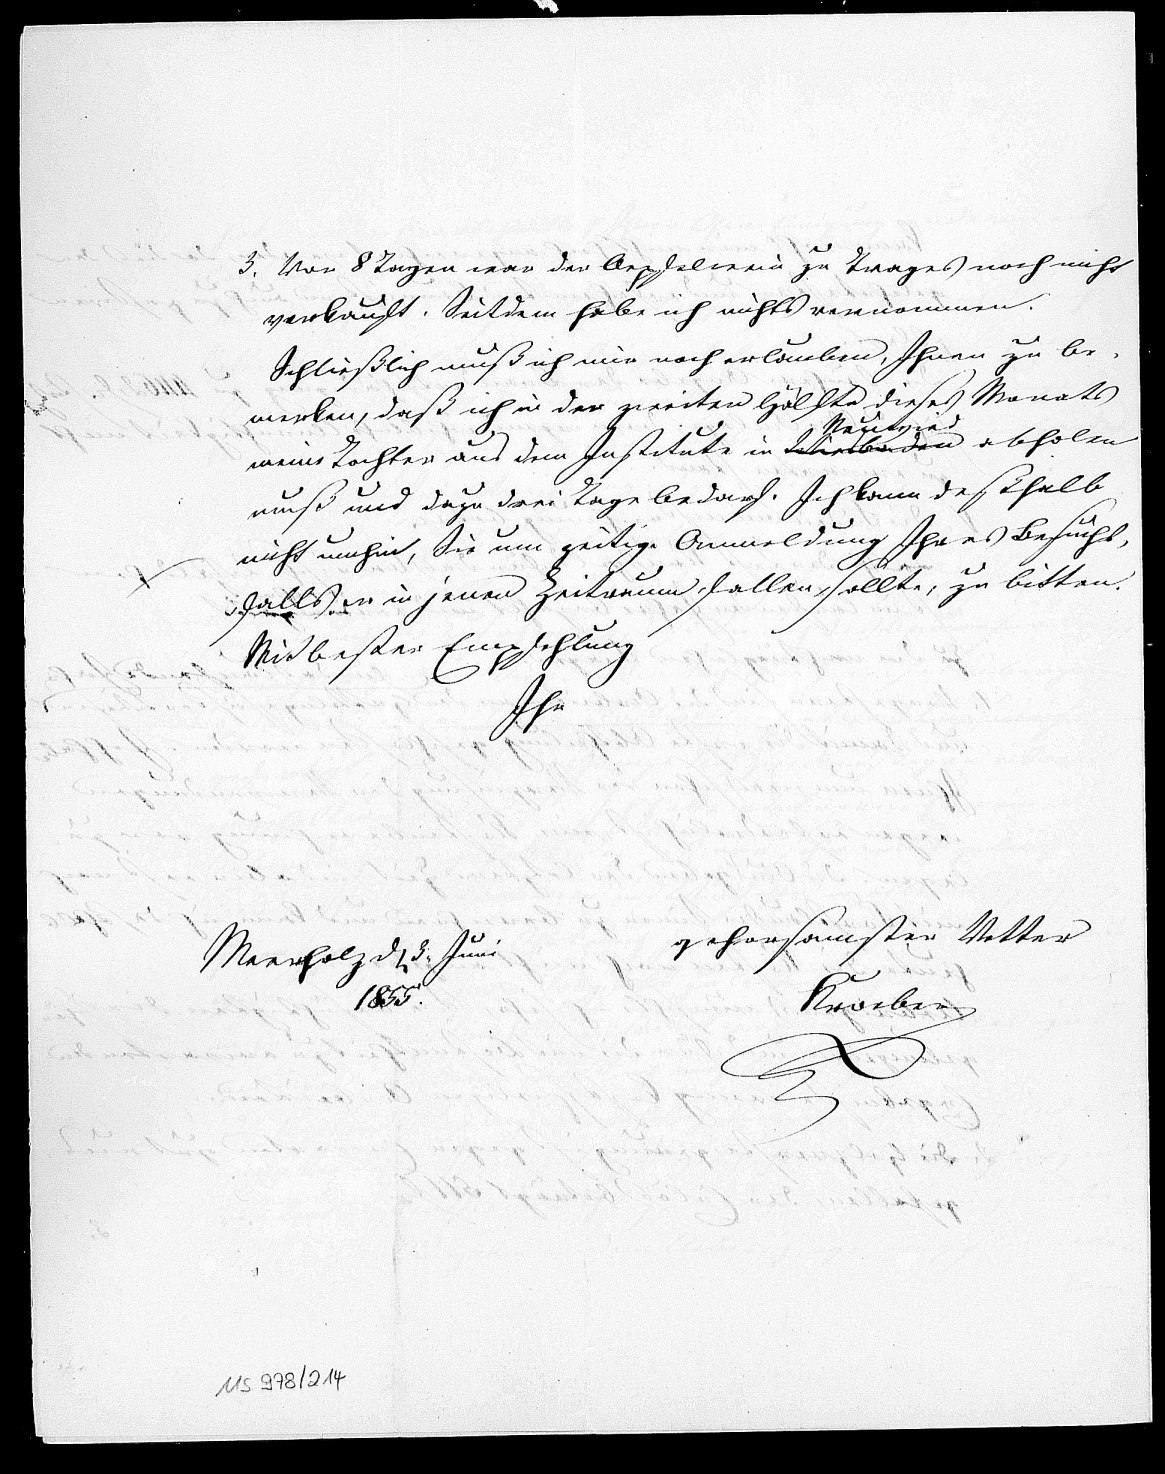 3. Vor 8 Tagen war der Aepfelwein zu Trages noch nicht
verkauft. Seitdem habe ich nichts vernommen.
Schließlich muß ich mir noch erlauben, Ihnen zu be-
merken, daß ich in der zweiten Hälfte dieses Monats
Neuwied
meine Tochter aus dem Institute in Wiesbaden abholen
muß und dazu drei Tage bedarf. Ich kann deßhalb
nicht umhin, Sie um zeitige Anmeldung Ihres Besuchs,
falls er in jenen Zeitraum fallen sollte, zu bitten.
Mit bester Empfehlung
Ihr
gehorsamster Vetter
Meerholz d. 3. Juni
Kroeber
1855.
MS 978/214